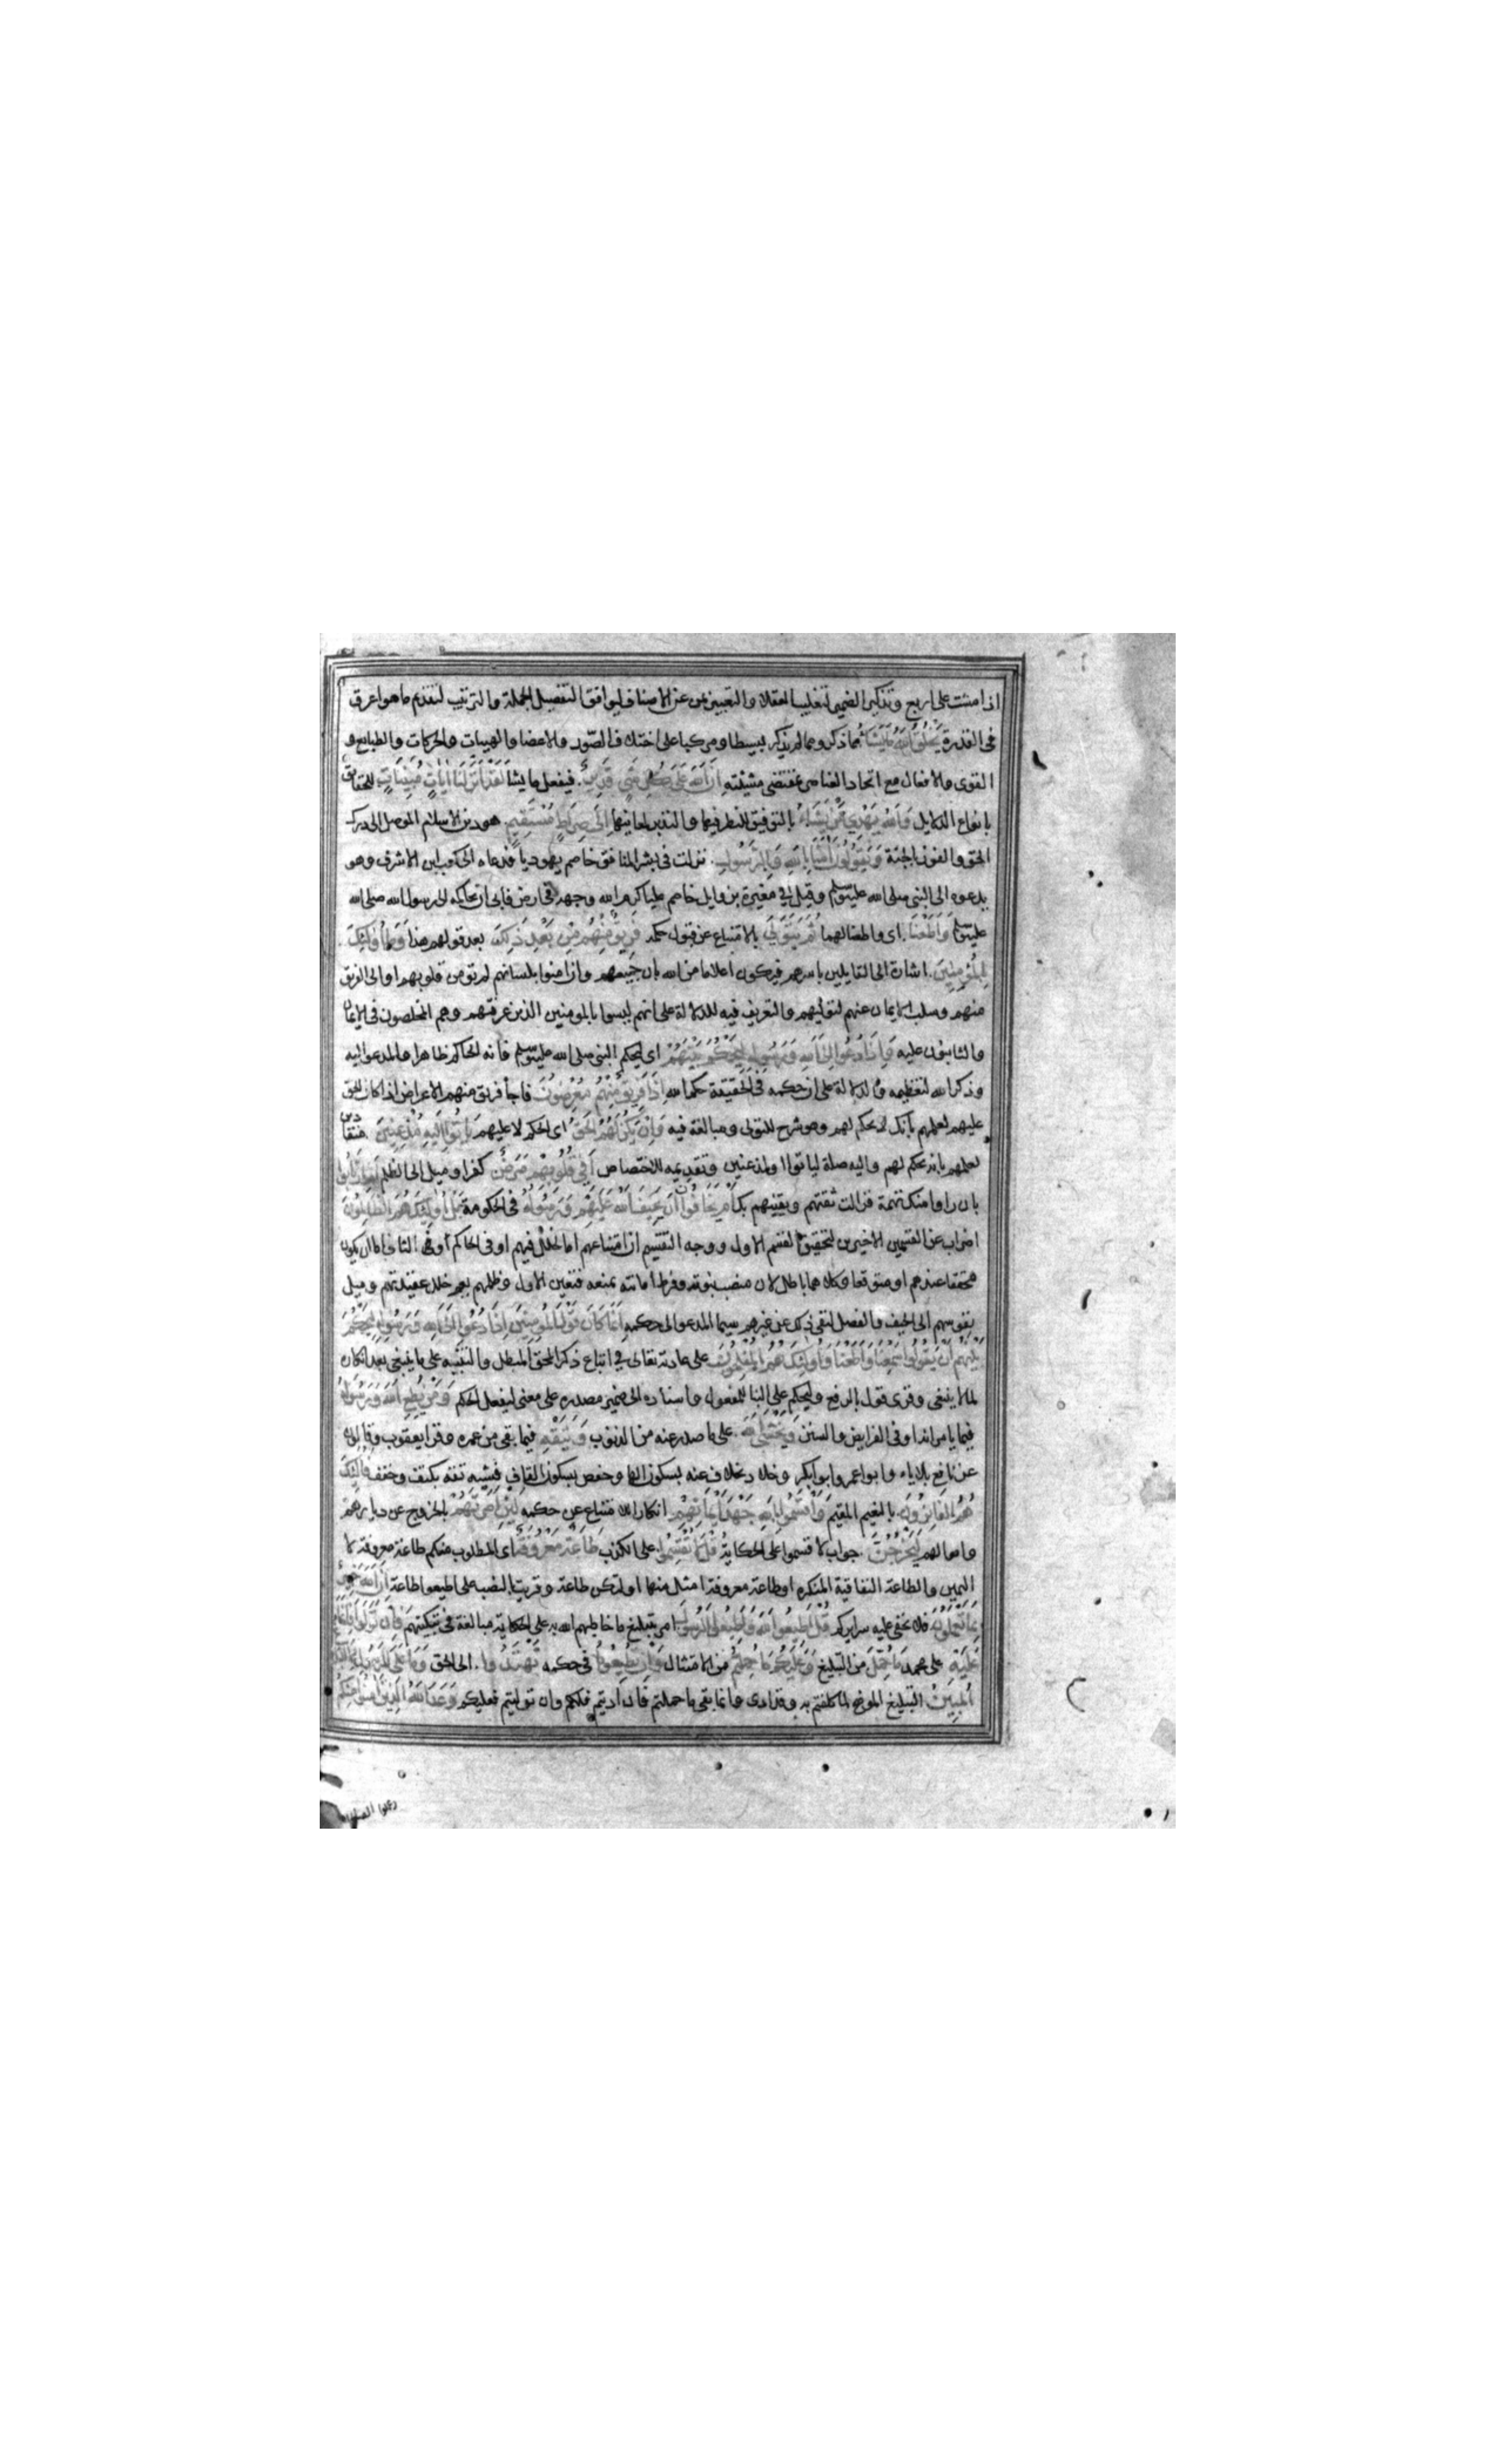 اذا مشت على اربع وتذكير الضمير لتغليب العقلاء والتعبير بمن عن الاصناف ليوافق التفصيل الجملة والترتيب لتقديم ما هو اعرق
فى القدرة يَخْلُقُ اللهُ مَا يَشَاءُ مما ذكر ومما لم يذكر بسيطا ومركبا على اختلاف الصور والاعضا والهيات والحركات والطبايع و
القوى والافعال مع اتحاد العنصر بمقتضى مشيئته اِنَّ اللهَ عَلَى كُلِّ شَىْءٍ قَدِيرٌ. فيفعل ما يشا لَقَدْ اَنْزَلْنَا اٰيَاتٍ مُبَيِّنَاتٍ للحقايق
بانواع الدلايل وَاللهُ يَهْدِي مَنْ يَشَاءُ بالتوفيق للنظر فيها والتدبر لمعانيها اِلَى صِرَاطٍ مُسْتَقِيمٍ. هو دين الاسلام الموصل الى درك
الحق والفوز بالجنة وَيَقُولُونَ اٰمَنَّا بِاللهِ وَبِالرَّسُولِ. نزلت فى بشر المنافق خاصم يهوديا فدعاه الى كعب ابن الاشرف وهو
يدعوه الى النبى صلى الله عليه وسلم وقيل في مغيرة بن وايل خاصم عليا كرم الله وجهه فى ارض فابى ان يحاكمه الى رسول الله صلى الله
عليه وسلم وَاَطَعْنَا. اى واطعنا لهما ثُمَّ يَتَوَلَّى بالامتناع عن قبول حكمه فَرِيقٌ مِنْهُمْ مِنْ بَعْدِ ذٰلِكَ بعد قولهم هذا وَمَا اُولٰئِكَ
بِالْمُؤْمِنِينَ. اشارة الى القايلين باسرهم فيكون اعلاما من الله بان جميعهم وان امنوا بلسانهم لم تؤمن قلوبهم او الى الفريق
منهم وسلب الايمان عنهم لتوليهم والتعريف فيه للدلالة على انهم ليسوا بالمومنين الذين عرفتهم وهم المخلصون فى الايمان
والثابتون عليه وَاِذَا دُعُوا اِلَى اللهِ وَرَسُولِهِ لِيَحْكُمَ بَيْنَهُمْ اى ليحكم النبى صلى الله عليه وسلم فانه الحاكم ظاهرا والمدعو اليه
وذكر الله لتعظيمه والدلالة على ان حكمه فى الحقيقة حكم الله اِذَا فَرِيقٌ مِنْهُمْ مُعْرِضُونَ فاجأ فريق منهم الاعراض اذا كان الحق
عليهم لعلمهم بانك لا تحكم لهم وهو شرح للتولى ومبالغة فيه وَاِنْ يَكُنْ لَهُمُ الْحَقُّ اى الحكم لا عليهم يَاْتُوا اِلَيْهِ مُذْعِنِينَ منقادين
لعلمهم بانه يحكم لهم واليه صلة لياتوا او لمذعنين وتقديمه للاختصاص اَفِي قُلُوبِهِمْ مَرَضٌ كفر او ميل الى الظلم اَمِ ارْتَابُوا
بان راوا منك تهمة فزالت ثقتهم ويقينهم بك اَمْ يَخَافُونَ اَنْ يَحِيفَ اللهُ عَلَيْهِمْ وَرَسُولُهُ فى الحكومة بَلْ اُولٰئِكَ هُمُ الظَّالِمُونَ
اضراب عن القسمين الاخيرين لتحقيق القسم الاول ووجه التقسيم ان امتناعهم اما لخلل فيهم او فى الحاكم والثانى اما ان يكون
محققا عندهم او متوقعا وكلاهما باطل لان منصب نبوته وفرط امانته تمنعه فتعين الاول وظلمهم يعم خلل عقيدتهم وميل
نفوسهم الى الحيف والفصل لنفى ذلك عن غيرهم سيما المدعو الى حكمه اِنَّمَا كَانَ قَوْلَ الْمُؤْمِنِينَ اِذَا دُعُوا اِلَى اللهِ وَرَسُولِهِ لِيَحْكُمَ
بَيْنَهُمْ اَنْ يَقُولُوا سَمِعْنَا وَاَطَعْنَا وَاُولٰئِكَ هُمُ الْمُفْلِحُونَ على عادته تعالى في اتباع ذكر المحق المبطل والتنبيه على ما ينبغى بعد انكاره
لما لا ينبغى وقرى قول بالرفع وليحكم على البنا للمفعول واسناده الى ضمير مصدره على معنى ليفعل الحكم وَمَنْ يُطِعِ اللهَ وَرَسُولَهُ
فيما يامرانه او فى الفرايض والسنن وَيَخْشَ اللهَ. على ما صدر عنه من الذنوب وَيَتَّقْهِ فيما بقى من عمره وقرا يعقوب وقالون
عن نافع بلا ياء وابو عمرو وابو بكر وخلاد بخلاف عنه بسكون الها وحفص بسكون القاف فشبه تقه بكتف وخفف فَاُولٰئِكَ
هُمُ الْفَائِزُونَ. بالنعيم المقيم وَاَقْسَمُوا بِاللهِ جَهْدَ اَيْمَانِهِمْ انكار للامتناع عن حكمه لَئِنْ اَمَرْتَهُمْ بالخروج عن ديارهم
واموالهم لَيَخْرُجُنَّ. جواب لاقسموا على الحكاية قُلْ لَا تُقْسِمُوا على الكذب طَاعَةٌ مَعْرُوفَةٌ اى المطلوب منكم طاعة معروفة لا
اليمين والطاعة النفاقية المنكره او طاعة معروفة امثل منها او لتكن طاعة وقريت بالنصب على اطيعوا طاعة اِنَّ اللهَ خَبِيرٌ
بِمَا تَعْمَلُونَ فلا يخفى عليه سرايركم قُلْ اَطِيعُوا اللهَ وَاَطِيعُوا الرَّسُولَ امر بتبليغ ما خاطبهم الله به على الحكاية مبالغة فى تبكيتهم فَاِنْ تَوَلَّوْا فَاِنَّمَا
عَلَيْهِ على محمد مَا حُمِّلَ من التبليغ وَعَلَيْكُمْ مَا حُمِّلْتُمْ من الامتثال وَاِنْ تُطِيعُوهُ فى حكمه تَهْتَدُوا. الى الحق وَمَا عَلَى الرَّسُولِ اِلَّا الْبَلَاغُ
الْمُبِينُ التبليغ الموضح لما كلفتم به وقد ادى وانما بقى ما حملتم فان اديتم فلكم وان توليتم فعليكم وَعَدَ اللهُ الَّذِينَ اٰمَنُوا مِنْكُمْ
وعملوا الصالحات